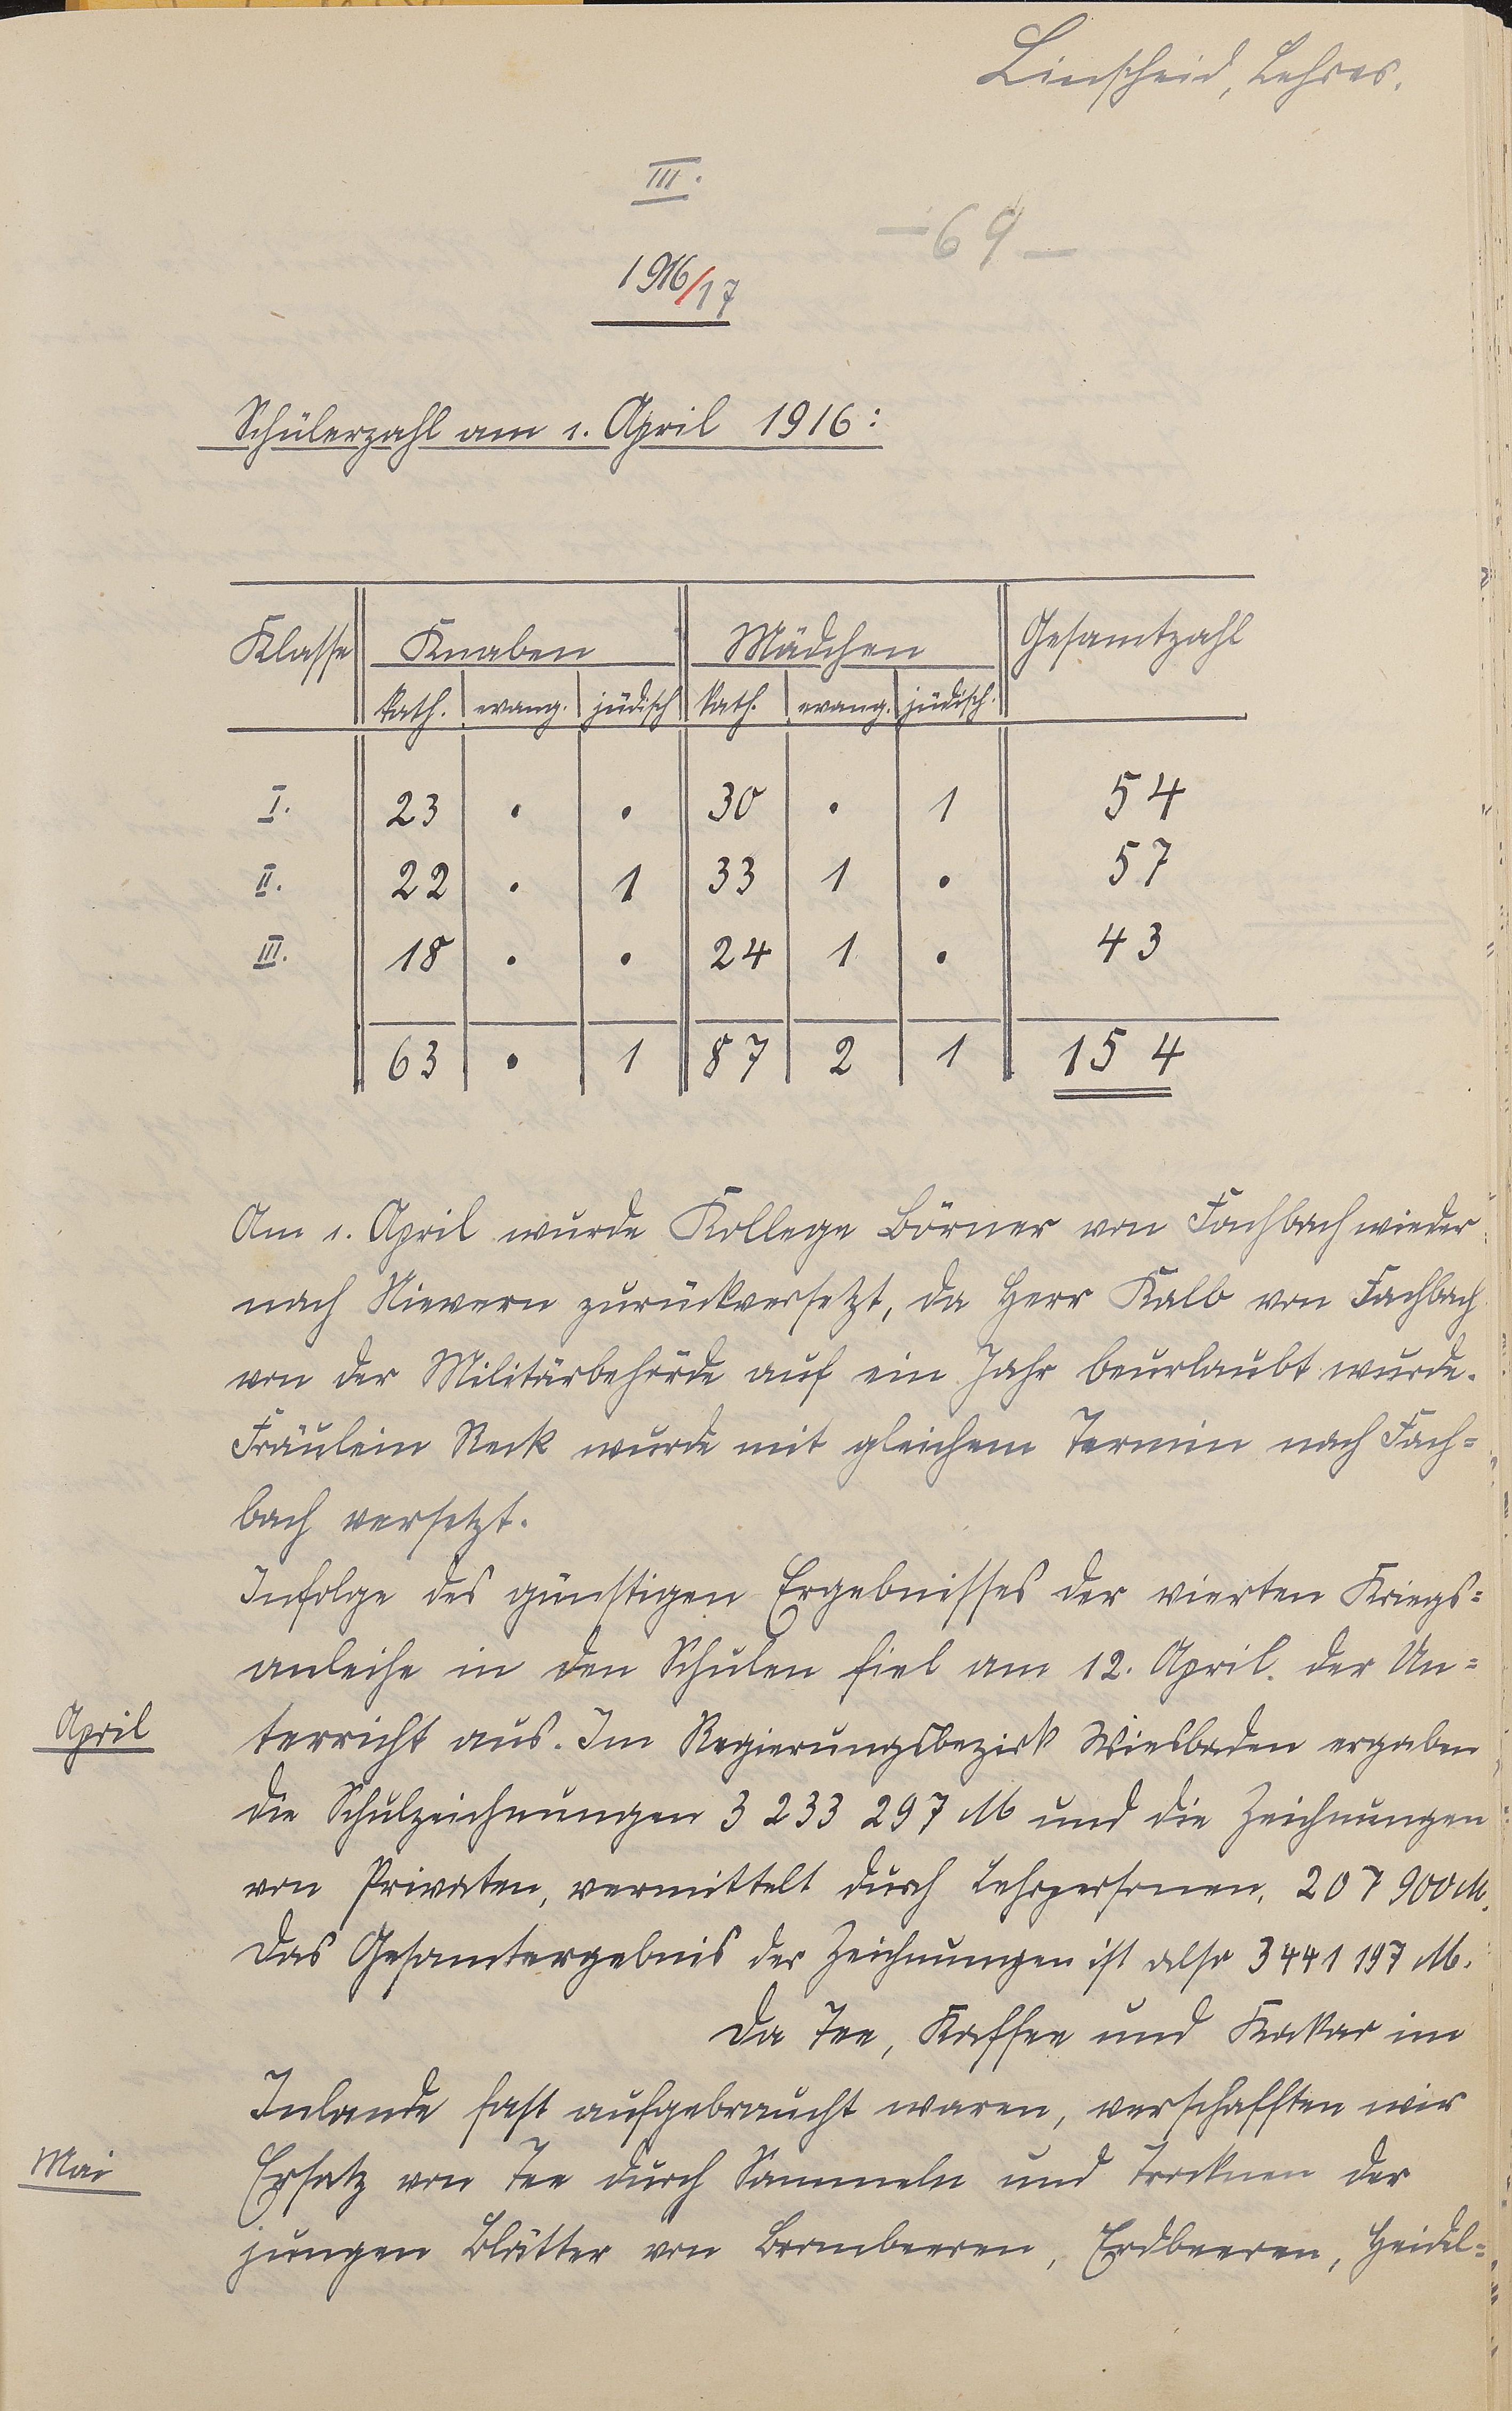 Linscheid, Lehrer.
III.
-69-
1916/17
Schülerzahl am 1. April 1916:
Klasse Knaben Mädchen Gesamtzahl
kath. evang. jüdisch kath. evang. jüdisch.
I. 23 . . 30 . 1 54
II. 22 . 1 33 1 . 57
III. 18 . . 24 1 . 43
63 . 1 87 2 1 154
Am 1. April wurde Kollege Börner von Fachbach wieder
nach Nievern zurückversetzt, da Herr Kalb von Fachbach
von der Militärbehörde auf ein Jahr beurlaubt wurde.
Fräulein Reck wurde mit gleichem Termin nach Fach=
bach versetzt.
Infolge des günstigen Ergebnisses der vierten Kriegs=
anleihe in den Schulen fiel am 12. April. der Un=
April
terricht aus. Im Regierungsbezirk Wiesbaden ergaben
die Schulzeichnungen 3 233 297 M und die Zeichnungen
von Privaten, vermittelt durch Lehrpersonen, 207 900 M.
Das Gesamtergebnis der Zeichnungen ist also 3441 197 M.
Da Tee, Kaffee und Kakao im
Inlande fast aufgebraucht waren, verschafften wir
Mai
Ersatz von Tee durch Sammeln und Trocknen der
jungen Blätter von Brombeeren, Erdbeeren, Heidel=